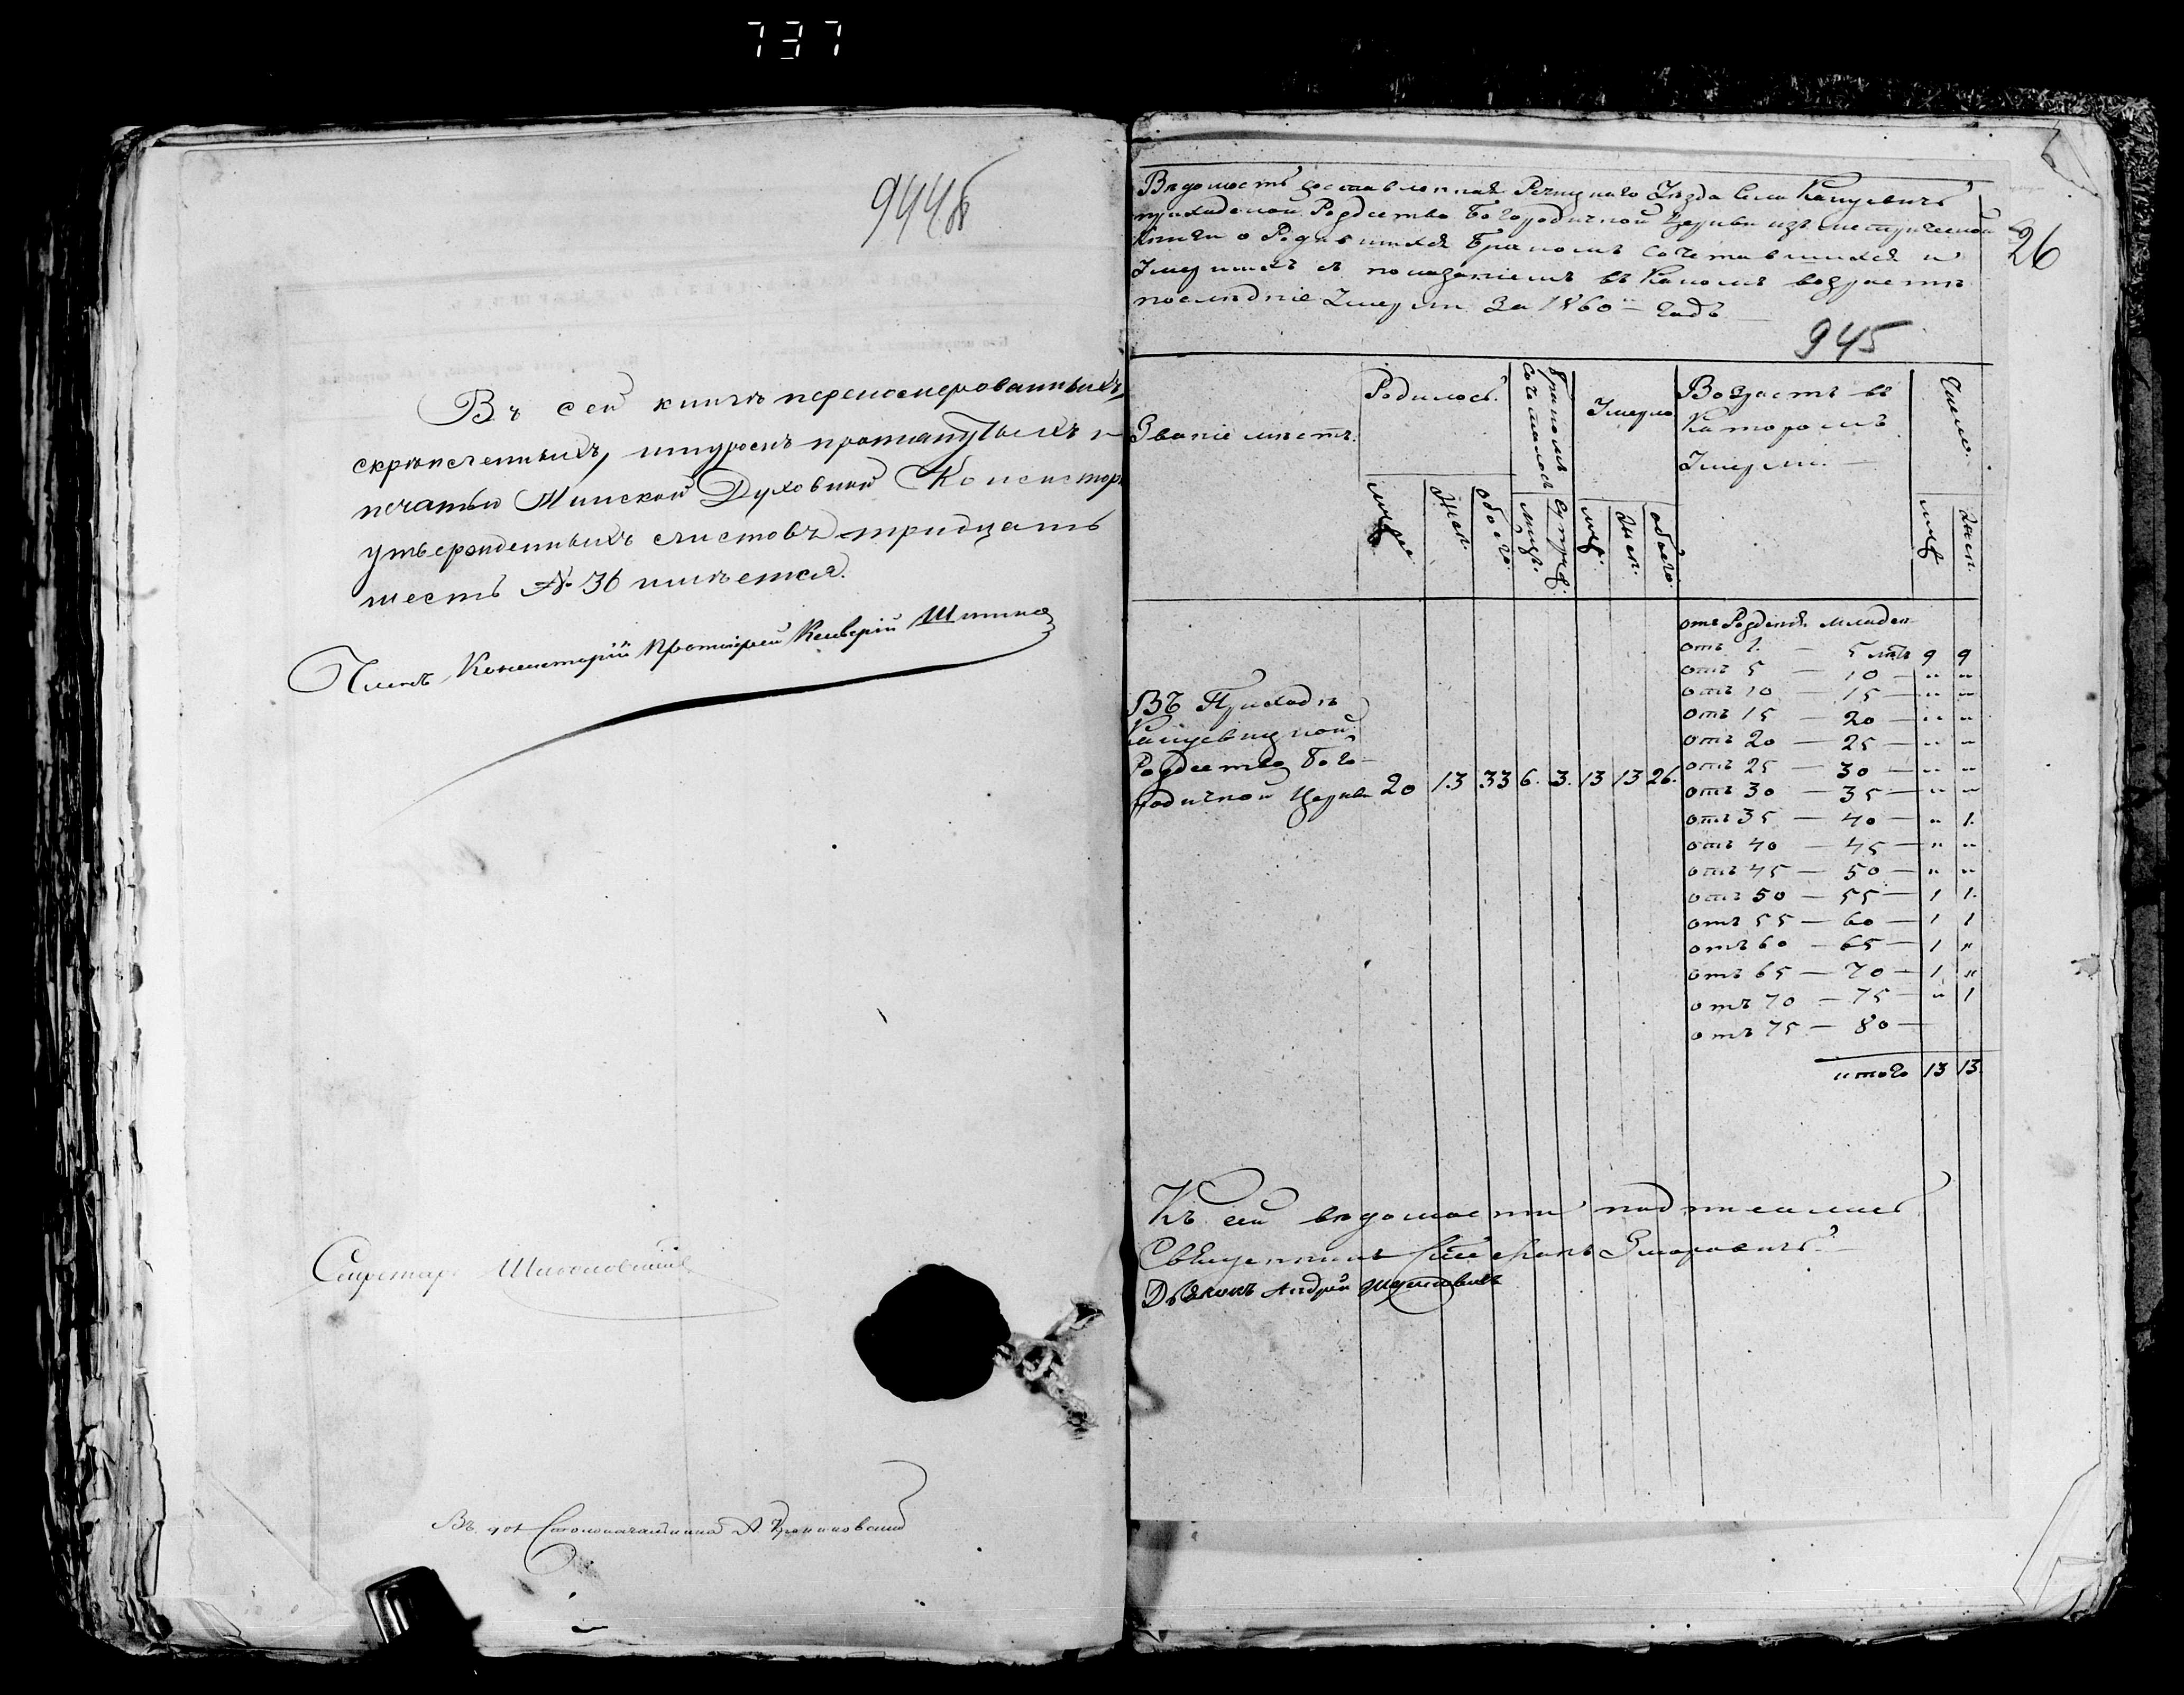 737
944об
Въ сей книгѣ перенумерованныхъ,
скрѣпленныхъ, шнуромъ протянутыхъ и
печатью Минской Духовной Консистор
утвержденныхъ листовъ тридцать
шесть № 36 имѣется.
Членъ Консисторіи Протоіерей
Секретарь
Въ дол Столоначальника А
26
Вѣдомость составленная Рѣчицкаго Уѣзда Села
приходской Рождество Богородичной Церкви изъ метрической
книги о Родившихся Бракомъ сочетавшихся и
Умершихъ съ показаніемъ въ Какомъ возрастѣ
послѣдніе Умерли За 1860 годъ
945
Званіе мѣстъ.
Родилось.
Бракомъ
сочеталось
Умерло
Возрастъ въ
Которомъ
Умерли.
Число.
муж
жен.
обоего.
муж.
жен.
обоего.
муж
жен.
отъ Рожденія младен
отъ 1. — 5 лѣтъ 9 9
отъ 5 — 10 — " "
отъ 10 — 15 — " "
отъ 15 — 20 — " "
отъ 20 — 25 — " "
отъ 25 — 30 — " "
отъ 30 — 35 — " "
отъ 35 — 40 — " 1.
отъ 40 — 45 — " "
отъ 45 — 50 — " "
отъ 50 — 55 — 1 1.
отъ 55 — 60 — 1 1
отъ 60 — 65 — 1 "
отъ 65 — 70 — 1 "
отъ 70 — 75 — " 1
отъ 75 — 80 —
итого 13 13.
Въ Приходѣ
Рождество Бого-
родичной Церкви 20 13 33 6. 3. 13 13 26.
Къ сей вѣдомости подписались
Священникъ Стефанъ
Дьяконъ Андрей